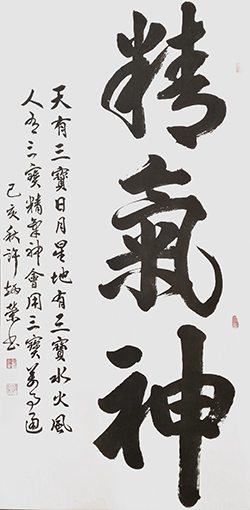 精氣神
天有三寶日月星地有三寶水火風
人有三寶精氣神會用三寶萬事通
己亥秋許炳榮書